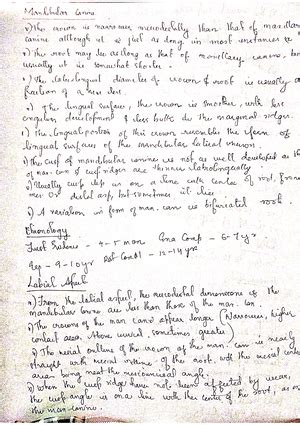 Mandibular Canine
→ The crown is narrower mesiodistally than that of maxillary
canine although it is just as long in most instances &
→ The root may be as long as that of maxillary canine, but
usually it is somewhat shorter.
→ The labiolingual diameter of crown & root is usually a
fraction of a
→ The lingual surface, the crown is smoother, with less
cingulum development & less bulk in the marginal ridges.
→ The lingual portion of this crown resemble the form of
lingual surfaces of the mandibular lateral incisors.
→ The cusp of mandibular canine is not as well developed as th
of max. canine & cusp ridges are thinner labiolingually
→ Usually cusp tip is on a line with centre of root, from
mes or distal asp, but sometimes it lies
→ A variation in form of man. can is bifurcated root.
Chronology
First Evidence - 4-5 mon Ena Comp - 6-7 yr
Erp - 9-10 yr Root Comp - 12-14 yr
Labial Aspect
→ From the labial aspect, the mesiodistal dimensions of the
mandibular canine are less than those of the max. can.
→ The crowns of the man. can appear longer (Narrower, higher
contact area. Above cervical, sometimes greater)
→ The mesial outline of the crown of the man. can is nearly
straight with mesial outline of the root, with the mesial contact
area being near the mesioincisal angle.
→ When the cusp ridges have not been affected by wear,
the cusp angle is on a line with the centre of the root, as on
the max. canine.